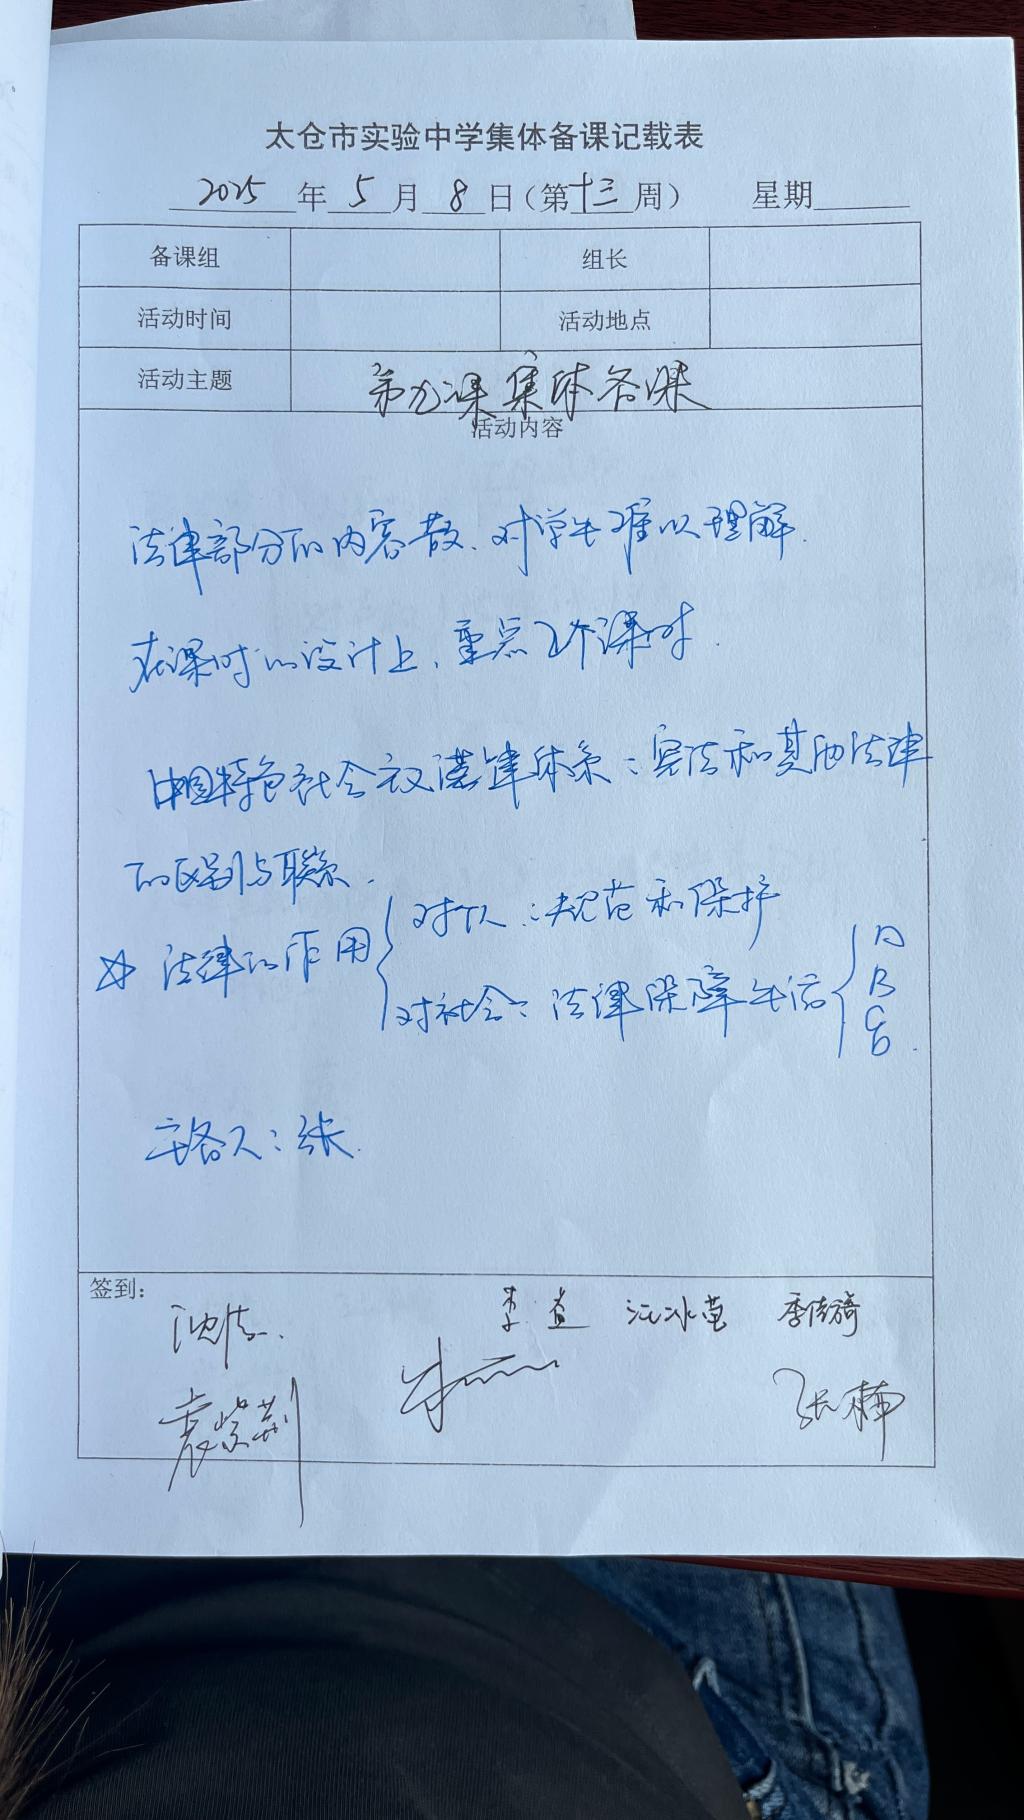 太仓市实验中学集体备课记载表
2025年5月8日（第十三周） 星期
备课组 组长
活动时间 活动地点
活动主题 第九课集体备课
活动内容
法律部分的内容散、对学生难以理解.
在课时的设计上、重点2个课时.
中国特色社会主义法律体系：宪法和其他法律
的区别与联系.
☆ 法律的作用
对个人：规范和保护
对社会：法律保障生活
A
B
C
D.
主备人：张.
签到：
李 汪冰莹 季倩旖
袁紫荆 张楠